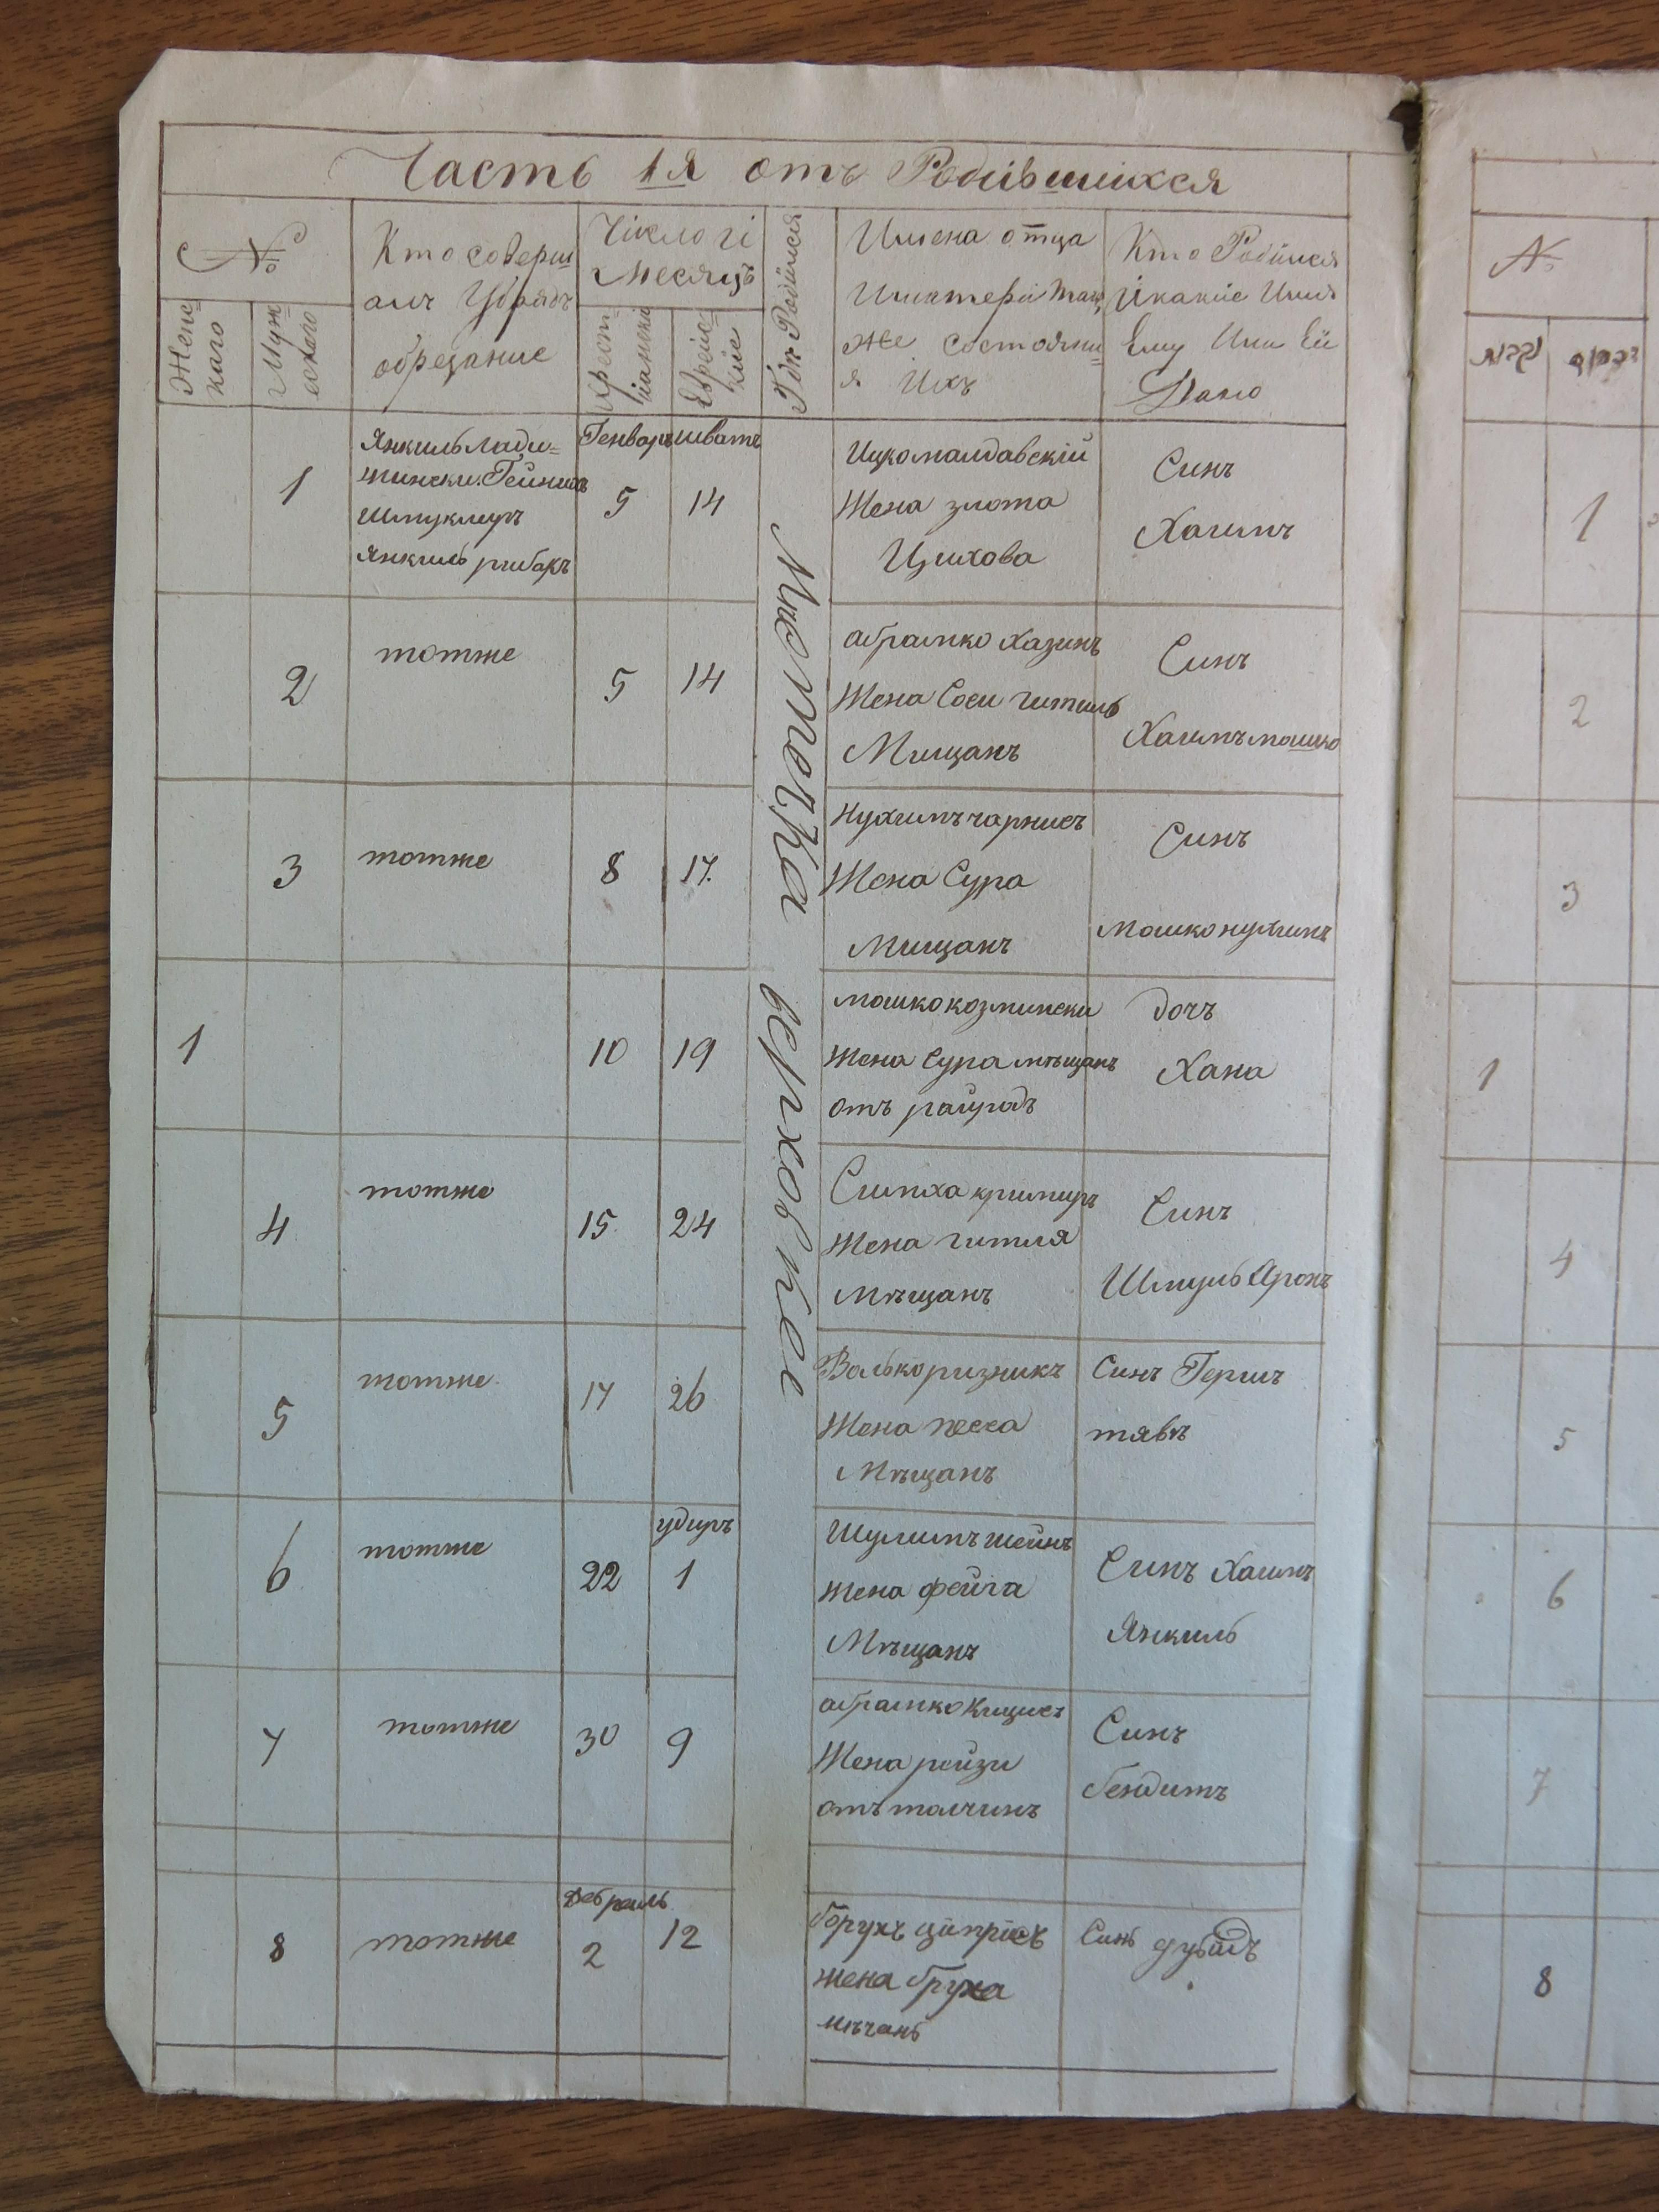 Часть 1я отъ Родившихся
№
Женс=
каго
Муж=
ескаго
Кто соверш
алъ Убрядъ
обрезание
Число гі
Месяцъ
Хрест=
іански
Еврейс=
кие
Гдѣ Родился
Имена отца
Иматери Так
же состояни=
я Ихъ
Кто Родился
Икакие Имя
Ему Или Ей
Дано
Мѣстечка велховцее
1
Янкиль Лади=
жински. Гейнихъ
Шмуклеръ
Янкиль рибакъ
Генваръ шватъ
5 14
Ицко малдавскій
Жена злота
Цихова
Синъ
Хаимъ
2
тотже
5 14
абрамко Хазинъ
Жена Соси гитиль
Мищанъ
Синъ
Хаимъ мошко
3
тотже
8 17.
Нухимъ чарнисъ
Жена Сура
Мищанъ
Синъ
мошко нухимъ
1
10 19
мошко козмински
Жена Сура мѣщанъ
отъ райградъ
дочъ
Хана
4
тотже
15 24
Симха кримиръ
Жена гитля
Мѣщанъ
Синъ
Шмуль Аронъ
5
тотже
17 26
Волько ризникъ
Жена песса
Мѣщанъ
Синъ Герш
тявъ
6
тотже
22
удиръ
1
Шулимъ шейнъ
Жена фейга
Мѣщанъ
Синъ Хаимъ
Янкиль
7
тотже
30 9
абрамко Кицисъ
Жена рейзи
отъ толчинъ
Синъ
бендитъ
8
тотже
Февраль
2 12
борухъ ципрісъ
жена бруха
мѣчанъ
Синъ дувидъ
№
1
2
3
1
4
5
6
7
8